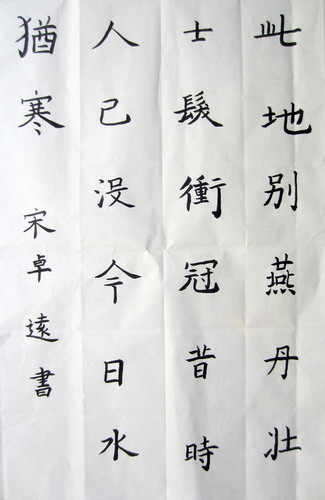 此地別燕丹壯
士髮衝冠昔時
人已没今日水
猶寒
宋卓遠書